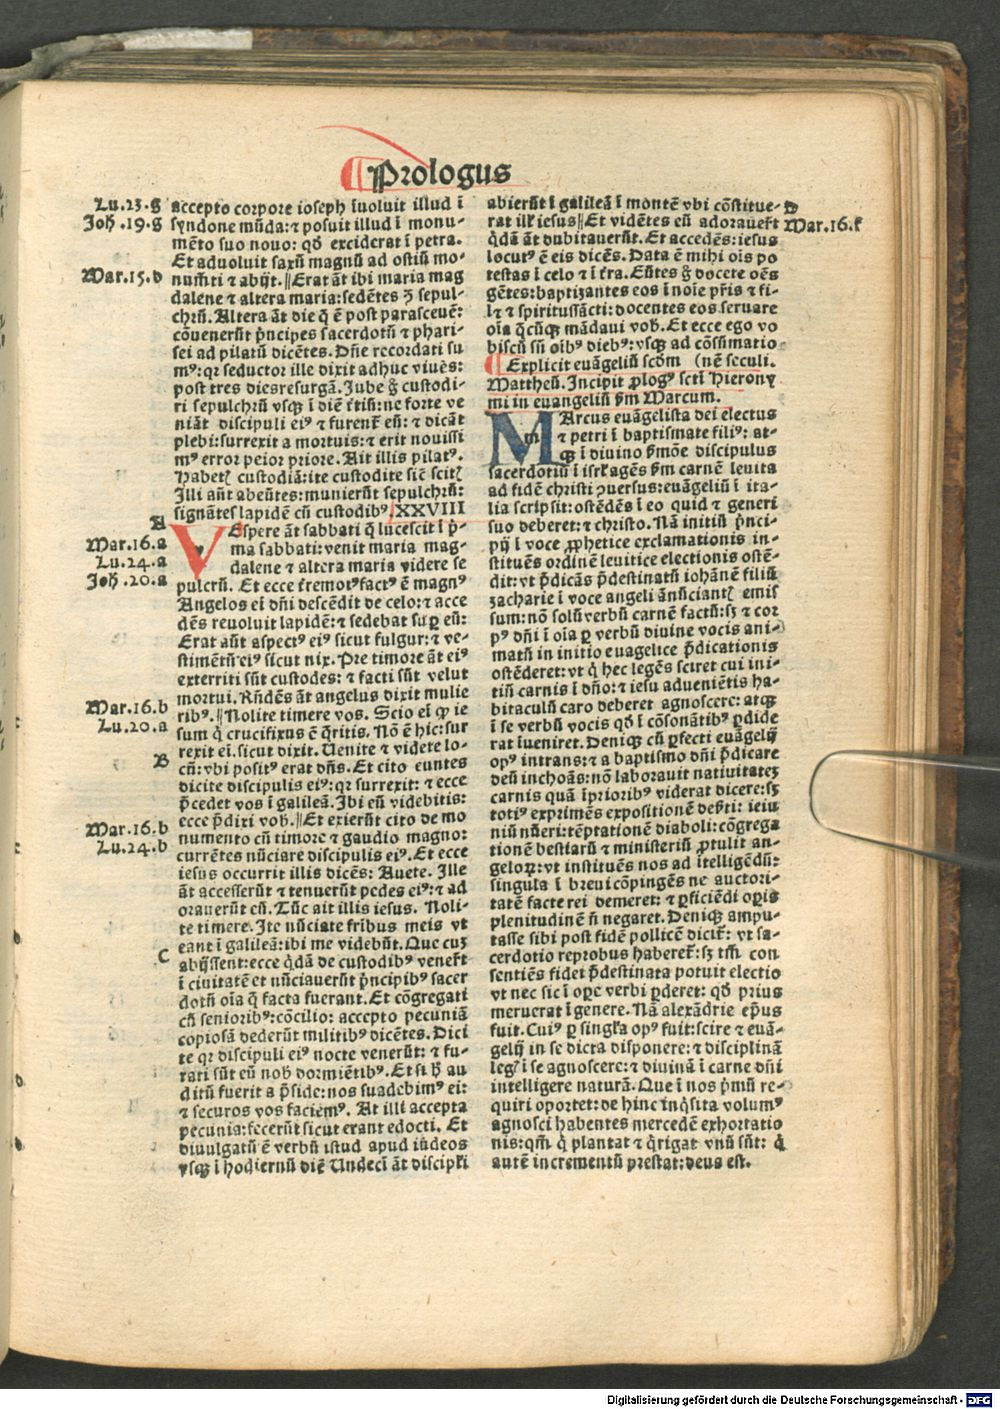 Prologus
Lu.23.g
Joh.19.g
Mar.15.d
accepto corpore ioseph īuoluit illud ī
syndone mūda:⁊ posuit illud ī monu-
mēto suo nouo: qđ exciderat ī petra.
Et aduoluit saxū magnū ad ostiū mo-
numēti ⁊ abijt. Erat āt ibi maria mag
dalene ⁊ altera maria:sedētes ꝫ sepul-
chrū. Altera āt die q̄ ē post parasceuē:
cōuenerūt p̄ncipes sacerdotū ⁊ phari-
sei ad pilatū dicētes. Dn̄e recordati su
mꝰ:qꝛ seductor ille dixit adhuc viuēs:
post tres dies resurgā. Jube ḡ custodi-
ri sepulchrū vsqꝫ ī diē t̄tiū:ne forte ve
niāt discipuli eiꝰ ⁊ furent̄ eū: ⁊ dicāt
plebi:surrexit a mortuis:⁊ erit nouissi
mꝰ error peior priore. Ait illis pilatꝰ.
Habetꝭ custodiā:ite custodite siē scitꝭ
Illi aūt abeūtes:munierūt sepulchrū:
signātes lapidē cū custodibꝰ. XXVIII
A
Mar.16.a
Lu.24.a
Joh.20.a
VEspere āt sabbati q̄ lucescit ī p̄-
ma sabbati:venit maria mag-
dalene ⁊ altera maria videre se
pulcrū. Et ecce t̄remotꝰ factꝰ ē magnꝰ
Angelos ei dn̄i descēdit de celo:⁊ acce
dēs reuoluit lapidē: ⁊ sedebat suꝑ eū:
Erat aūt aspectꝰ eiꝰ sicut fulgur: ⁊ ve-
stimētū eiꝰ sicut nix. Pre timore āt eiꝰ
exterriti sūt custodes: ⁊ facti sūt velut
mortui. Rn̄dēs āt angelus dixit mulie
Mar.16.b
Lu.20.a
ribꝰ. Nolite timere vos. Scio ei ꝙ ie
sum q̄ crucifixus ē q̄ritis. Nō ē hic:sur
rexit ei. sicut dixit. Uenite ⁊ videte lo-
B
cū: vbi positꝰ erat dn̄s. Et cito euntes
dicite discipulis eiꝰ: qꝛ surrexit: ⁊ ecce
p̄cedet vos ī galileā. Ibi eū videbitis:
ecce p̄dixi vob. Et exierūt cito de mo
Mar.16.b
Lu.24.b
numento cū timore ⁊ gaudio magno:
currētes nūciare discipulis eiꝰ. Et ecce
iesus occurrit illis dicēs: Auete. Ille
āt accesserūt ⁊ tenuerūt pedes eiꝰ:⁊ ad
orauerūt eū. Tūc ait illis iesus. Noli-
te timere. Ite nūciate fr̄ibus meis vt
eant ī galileā:ibi me videbūt. Que cuꝫ
C
abijssent:ecce q̄dā de custodibꝰ venert̄
ī ciuitatē et nūciauerūt p̄ncipibꝰ sacer
dotū oīa q̄ facta fuerant. Et cōgregati
cū senioribꝰ: cōcilio: accepto pecuniā
copiosā dederūt militibꝰ dicētes. Dici
te qꝛ discipuli eiꝰ nocte venerūt: ⁊ fu-
rati sūt eū nob dormiētibꝰ. Et si h̄ au
ditū fuerit a p̄side:nos suadebimꝰ ei:
⁊ securos vos faciemꝰ. At illi accepta
pecunia:fecerūt sicut erant edocti. Et
diuulgatū ē verbū istud apud iudeos
vsqꝫ ī hodiernū diē Undeci āt discipli
D
Mar.16.f
abierūt ī galileā ī montē vbi cōstitue-
rat ill' iesus. Et vidētes eū adorauert̄
q̄dā āt dubitauerūt. Et accedēs:iesus
locutꝰ ē eis dicēs. Data ē mihi oīs po
testas ī celo ⁊ ī t̄ra. Eūtes ḡ docete oēs
gētes:baptizantes eos ī noīe pr̄is ⁊ fi-
lꝭ ⁊ spiritussācti:docentes eos seruare
oīa q̄cūqꝫ mādaui vob. Et ecce ego vo
biscū sū oībꝰ diebꝰ:vsqꝫ ad cōsūmatio
Explicit euāgeliū scdm (nē seculi.
Mattheū. Incipit ꝓlogꝰ sctī Hierony
mi in euangeliū ẜm Marcum.
MArcus euāgelista dei electus
⁊ petri ī baptismate filiꝰ: at-
qꝫ ī diuino ẜmōe discipulus
sacerdotiū ī isrl' agēs ẜm carnē leuita
ad fidē christi ꝯuersus:euāgeliū ī ita-
lia scripsit:ostēdēs ī eo quid ⁊ generi
suo deberet:⁊ christo. Nā initiū p̄nci-
pij ī voce ꝓphetice exclamationis in-
stituēs ordinē leuitice electionis ostē-
dit:vt p̄dicās p̄destinatū iohānē filiū
zacharie ī voce angeli ānūciantꝭ emis
sum:nō solū verbū carnē factū:sꝫ ⁊ cor
pꝰ dn̄i ī oīa ꝑ verbū diuine vocis ani-
matū in initio euagelice p̄dicationis
ostēderet:vt q̄ hec legēs sciret cui ini-
tiū carnis ī dn̄o:⁊ iesu adueniētis ha-
bitaculū caro deberet agnoscere: atqꝫ
ī se verbū vocis qđ ī cōsonātibꝰ ꝑdide
rat īueniret. Deniqꝫ cū ꝑfecti euāgelij
opꝰ intrans:⁊ a baptismo dn̄i p̄dicare
deū inchoās:nō laborauit natiuitateꝫ
carnis quā ī prioribꝰ viderat dicere:sꝫ
totiꝰ exprimēs expositionē deẜti: ieiu
niū nūeri:tēptationē diaboli:cōgrega
tionē bestiarū ⁊ ministeriū ꝓtulit an-
geloꝝ:vt instituēs nos ad itelligēdū:
singula ī breui cōpingēs ne auctori-
tatē facte rei demeret: ⁊ ꝑficiēdi oꝑis
plenitudinē n̄ negaret. Deniqꝫ ampu-
tasse sibi post fidē pollicē dicit̄: vt sa-
cerdotio reprobus haberet̄:sꝫ tm̄ con
sentiēs fidei p̄destinata potuit electio
vt nec sic ī oꝑe verbi ꝑderet: qđ prius
meruerat ī genere. Nā alexādrie ep̄us
fuit. Cuiꝰ ꝑ singl'a opꝰ fuit:scire ⁊ euā-
gelij in se dicta disponere:⁊ disciplinā
legꝭ ī se agnoscere:⁊ diuinā ī carne dn̄i
intelligere naturā. Que ī nos p̄mū re-
quiri oportet:de hinc īnq̄sita volumꝰ
agnosci habentes mercedē exhortatio
nis:qm̄ q̄ plantat ⁊ q̄ rigat vnū sūt: q̄
autē incrementū prestat:deus est.
Digitalisierung gefördert durch die Deutsche Forschungsgemeinschaft - DFG